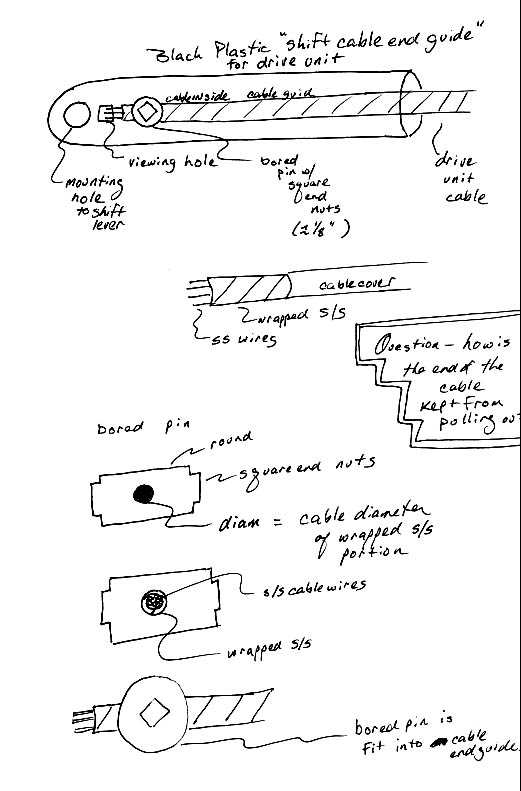 Black Plastic "shift cable end guide"
for drive unit
cable inside cable guid
viewing hole
bored
pin w/
square
end
nuts
(2 1/8")
drive
unit
cable
mounting
hole
to shift
lever
cable cover
wrapped s/s
ss wires
Question - how is
the end of the
cable
kept from
pulling out
bored pin
round
square end nuts
diam = cable diameter
of wrapped s/s
portion
s/s cable wires
wrapped s/s
bored pin is
fit into cable
end guide.